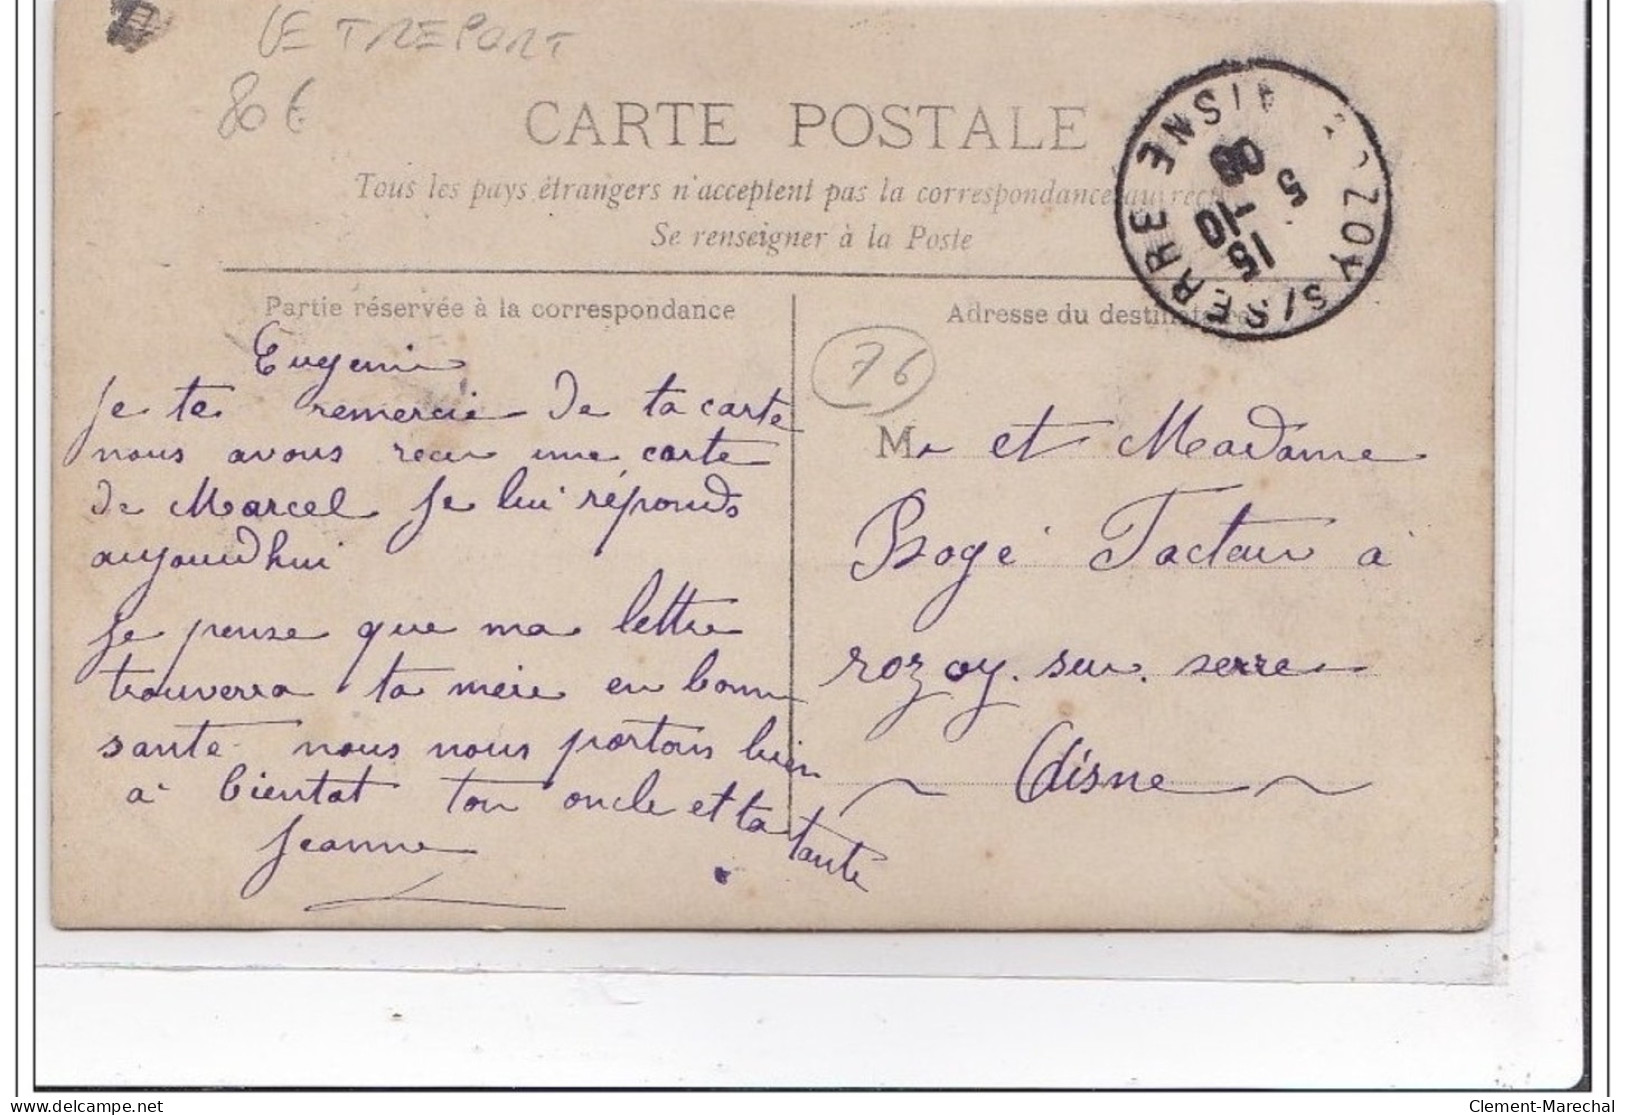 LE TREPORT
80 €
CARTE POSTALE
Tous les pays étrangers n'acceptent pas la correspondance au recto
Se renseigner à la Poste
ROZOY S/SERRE AISNE
5
15 -10 08
Partie réservée à la correspondance
Eugenie
je te remercie de ta carte
nous avons recu une carte
de Marcel je lui réponds
aujourd hui
je pense que ma lettre
trouverra ta mère en bonne
sante nous nous portons bien
a bientot ton oncle et ta tante
Jeanne
Adresse du destinataire
76
Mr et Madame
Bogé Facteur à
rozoy. sur. serre
Aisne
Clement-Marechal
www.delcampe.net